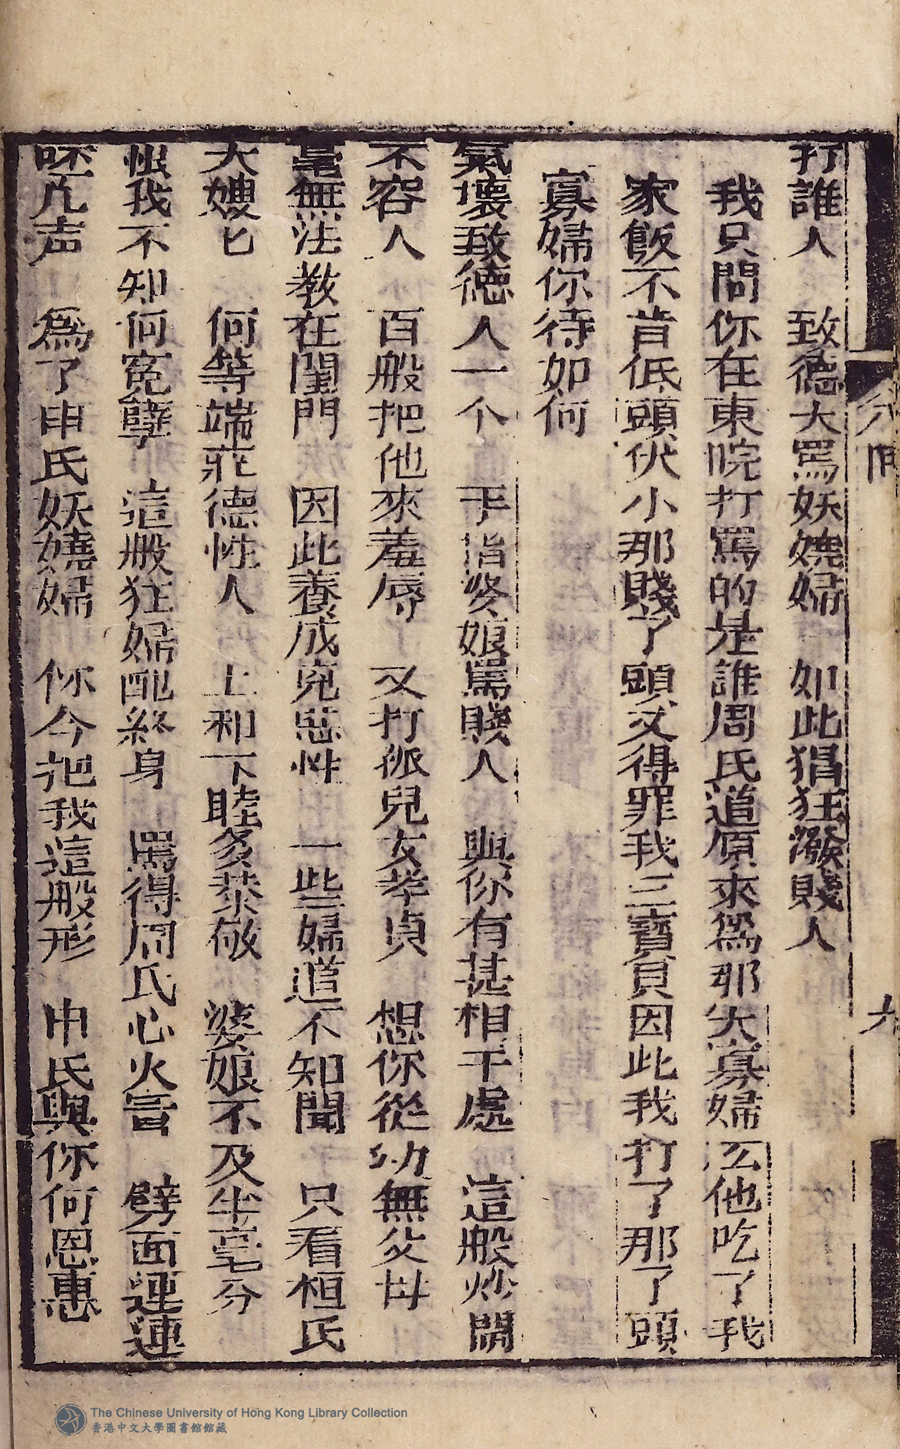 打誰人　致德大罵妖嬈婦　如此猖狂潑賤人
我只問你在東院打罵的是誰周氏道原來為那大寡婦么他吃了我
家飯不肯低頭伏小那賤了頭又得罪我三寶貝因此我打了那了頭
寡婦你待如何
氣壞致德人一个　手指婆娘罵賤人　與你有甚相干處　這般炒閙
不容人　百般把他來羞辱　又打孤兒女孝貞　想你從幼無父母
毫無法教在閨門　因此養成兇惡性　一些婦道不知聞　只看桓氏
大嫂匕　何等端莊德性人　上和下睦多恭敬　婆娘不及半毫分
恨我不知何冤孽　這般狂婦配終身　罵得周氏心火冒　劈面連連
呸几声　為了申氏妖嬈婦　你今把我這般形　申氏與你何恩惠
九
The Chinese University of Hong Kong Library Collection
香港中文大學圖書館館藏